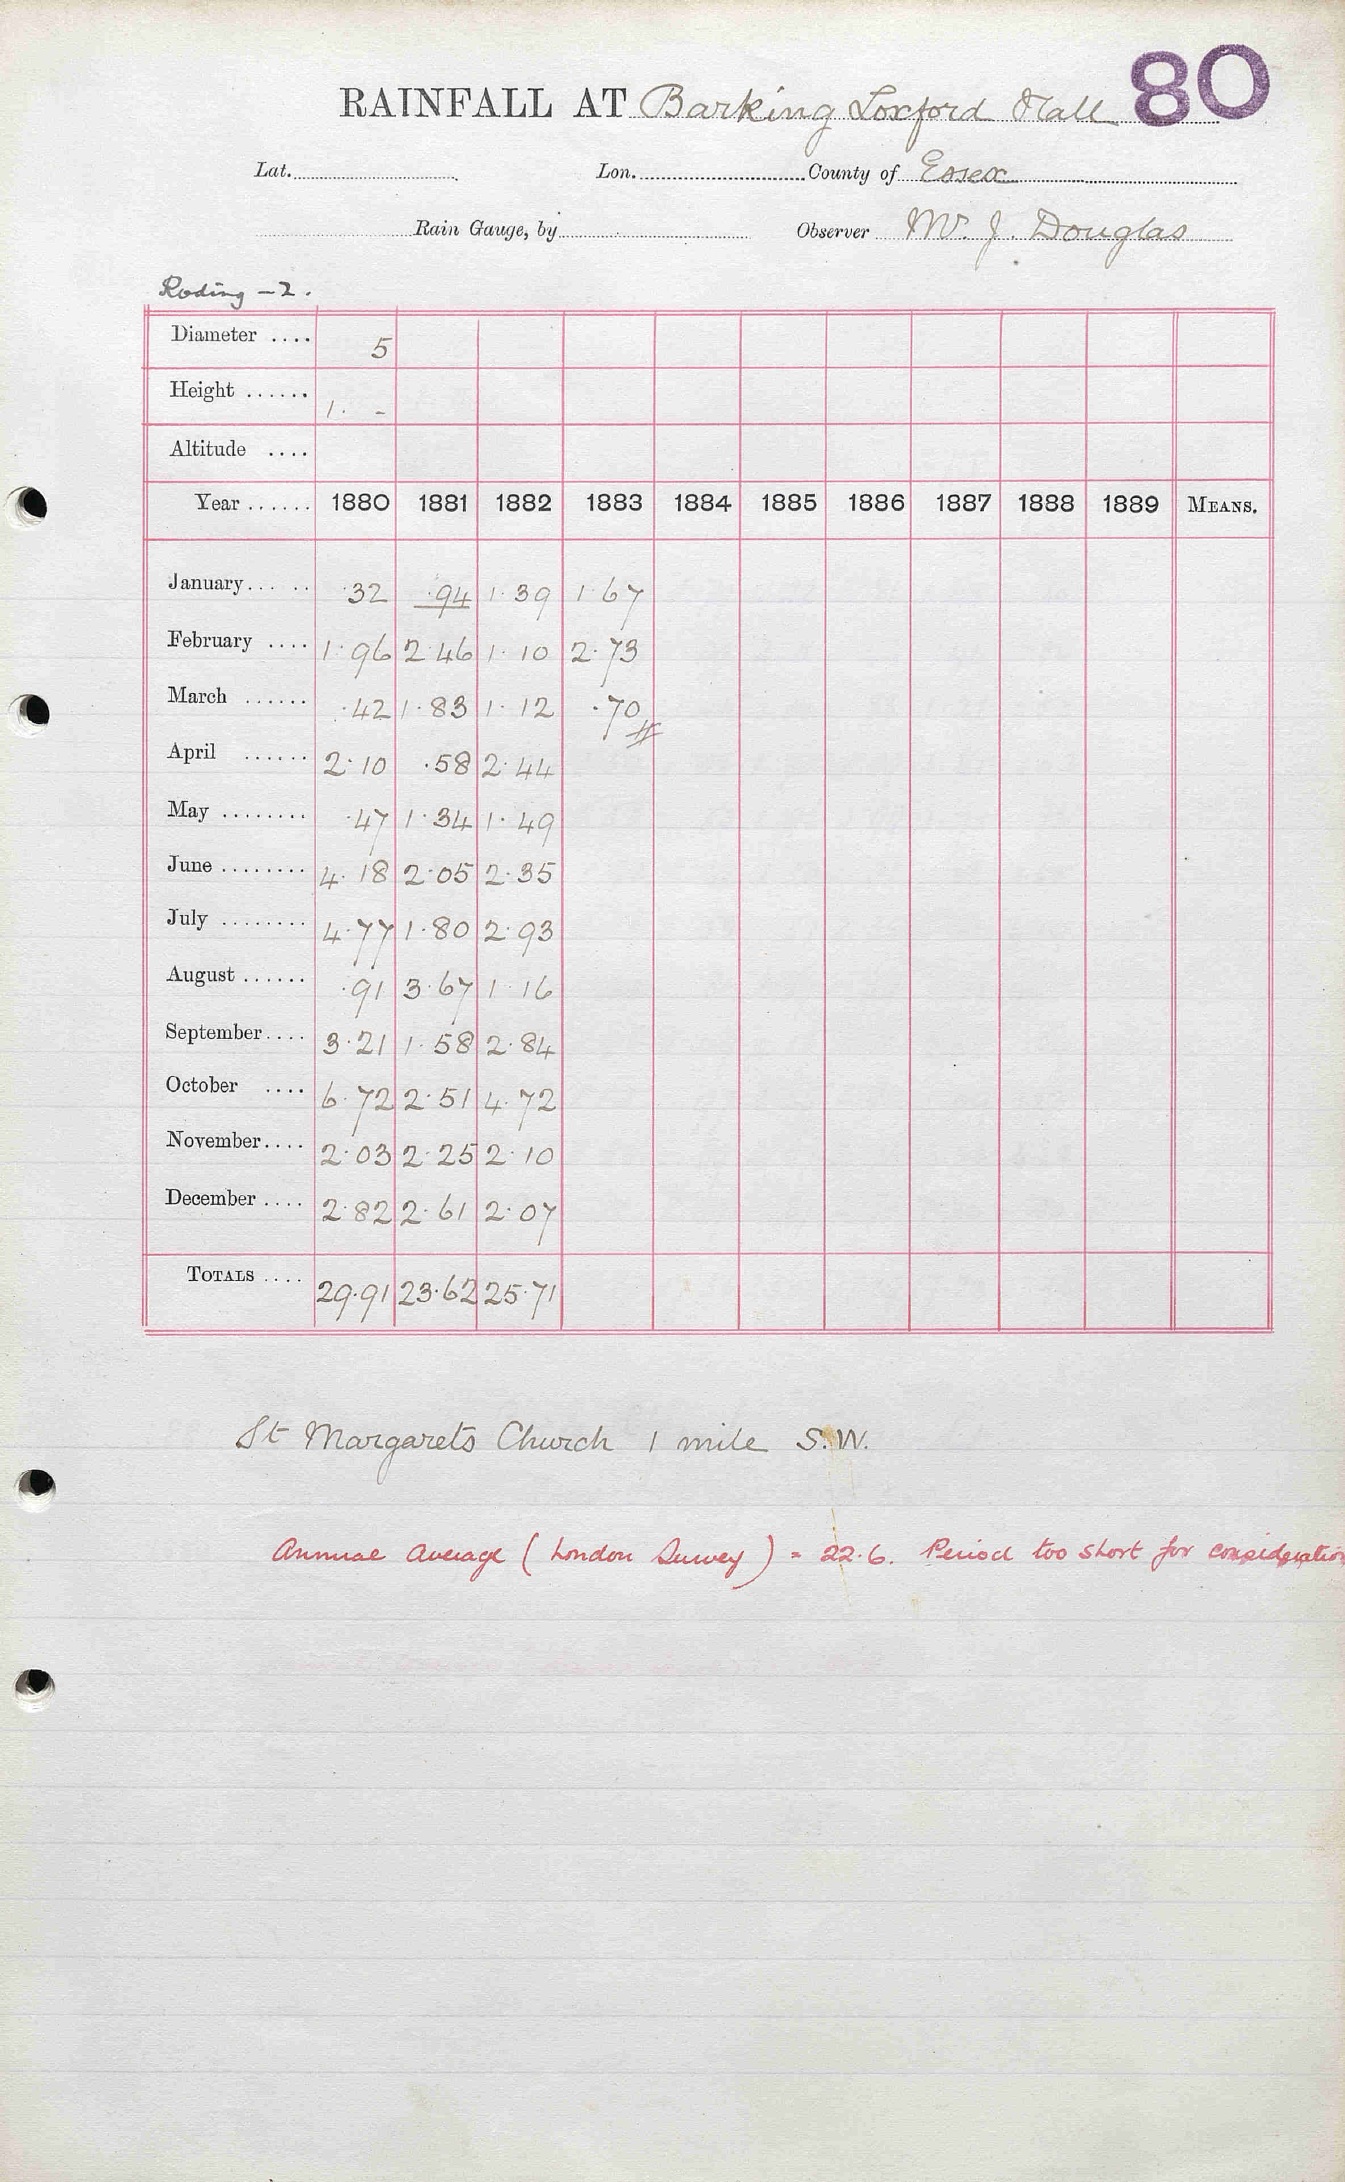 80
RAINFALL AT Barking Loxford Hall
Lat. Lon. County of Essex
Rain Gauge, by Observer Mr. J. Douglas
Roding - 2.
Diameter .... 5
Height ...... 1. -
Altitude ....
Year ...... 1880 1881 1882 1883 1884 1885 1886 1887 1888 1889 MEANS.
January...... .32 .94 1.39 1.67
February .... 1.96 2.46 1.10 2.73
March ...... .42 1.83 1.12 .70
April ...... 2.10 .58 2.44
May ........ .47 1.34 1.49
June ........ 4.18 2.05 2.35
July ........ 4.77 1.80 2.93
August ...... .91 3.67 1.16
September.... 3.21 1.58 2.84
October .... 6.72 2.51 4.72
November.... 2.03 2.25 2.10
December .... 2.82 2.61 2.07
TOTALS .... 29.91 23.62 25.71
St Margarets Church 1 mile S.W.
Annual Average (London Survey) = 22.6. Period too short for consideration